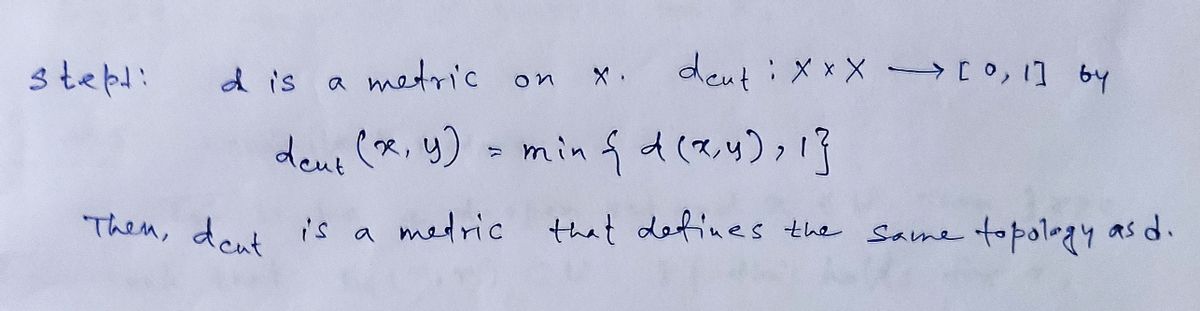 step1: d is a metric on X. dcut : X x X → [0,1] by
dcut (x, y) = min { d (x,y), 1}
Then, dcut is a metric that defines the same topology as d.